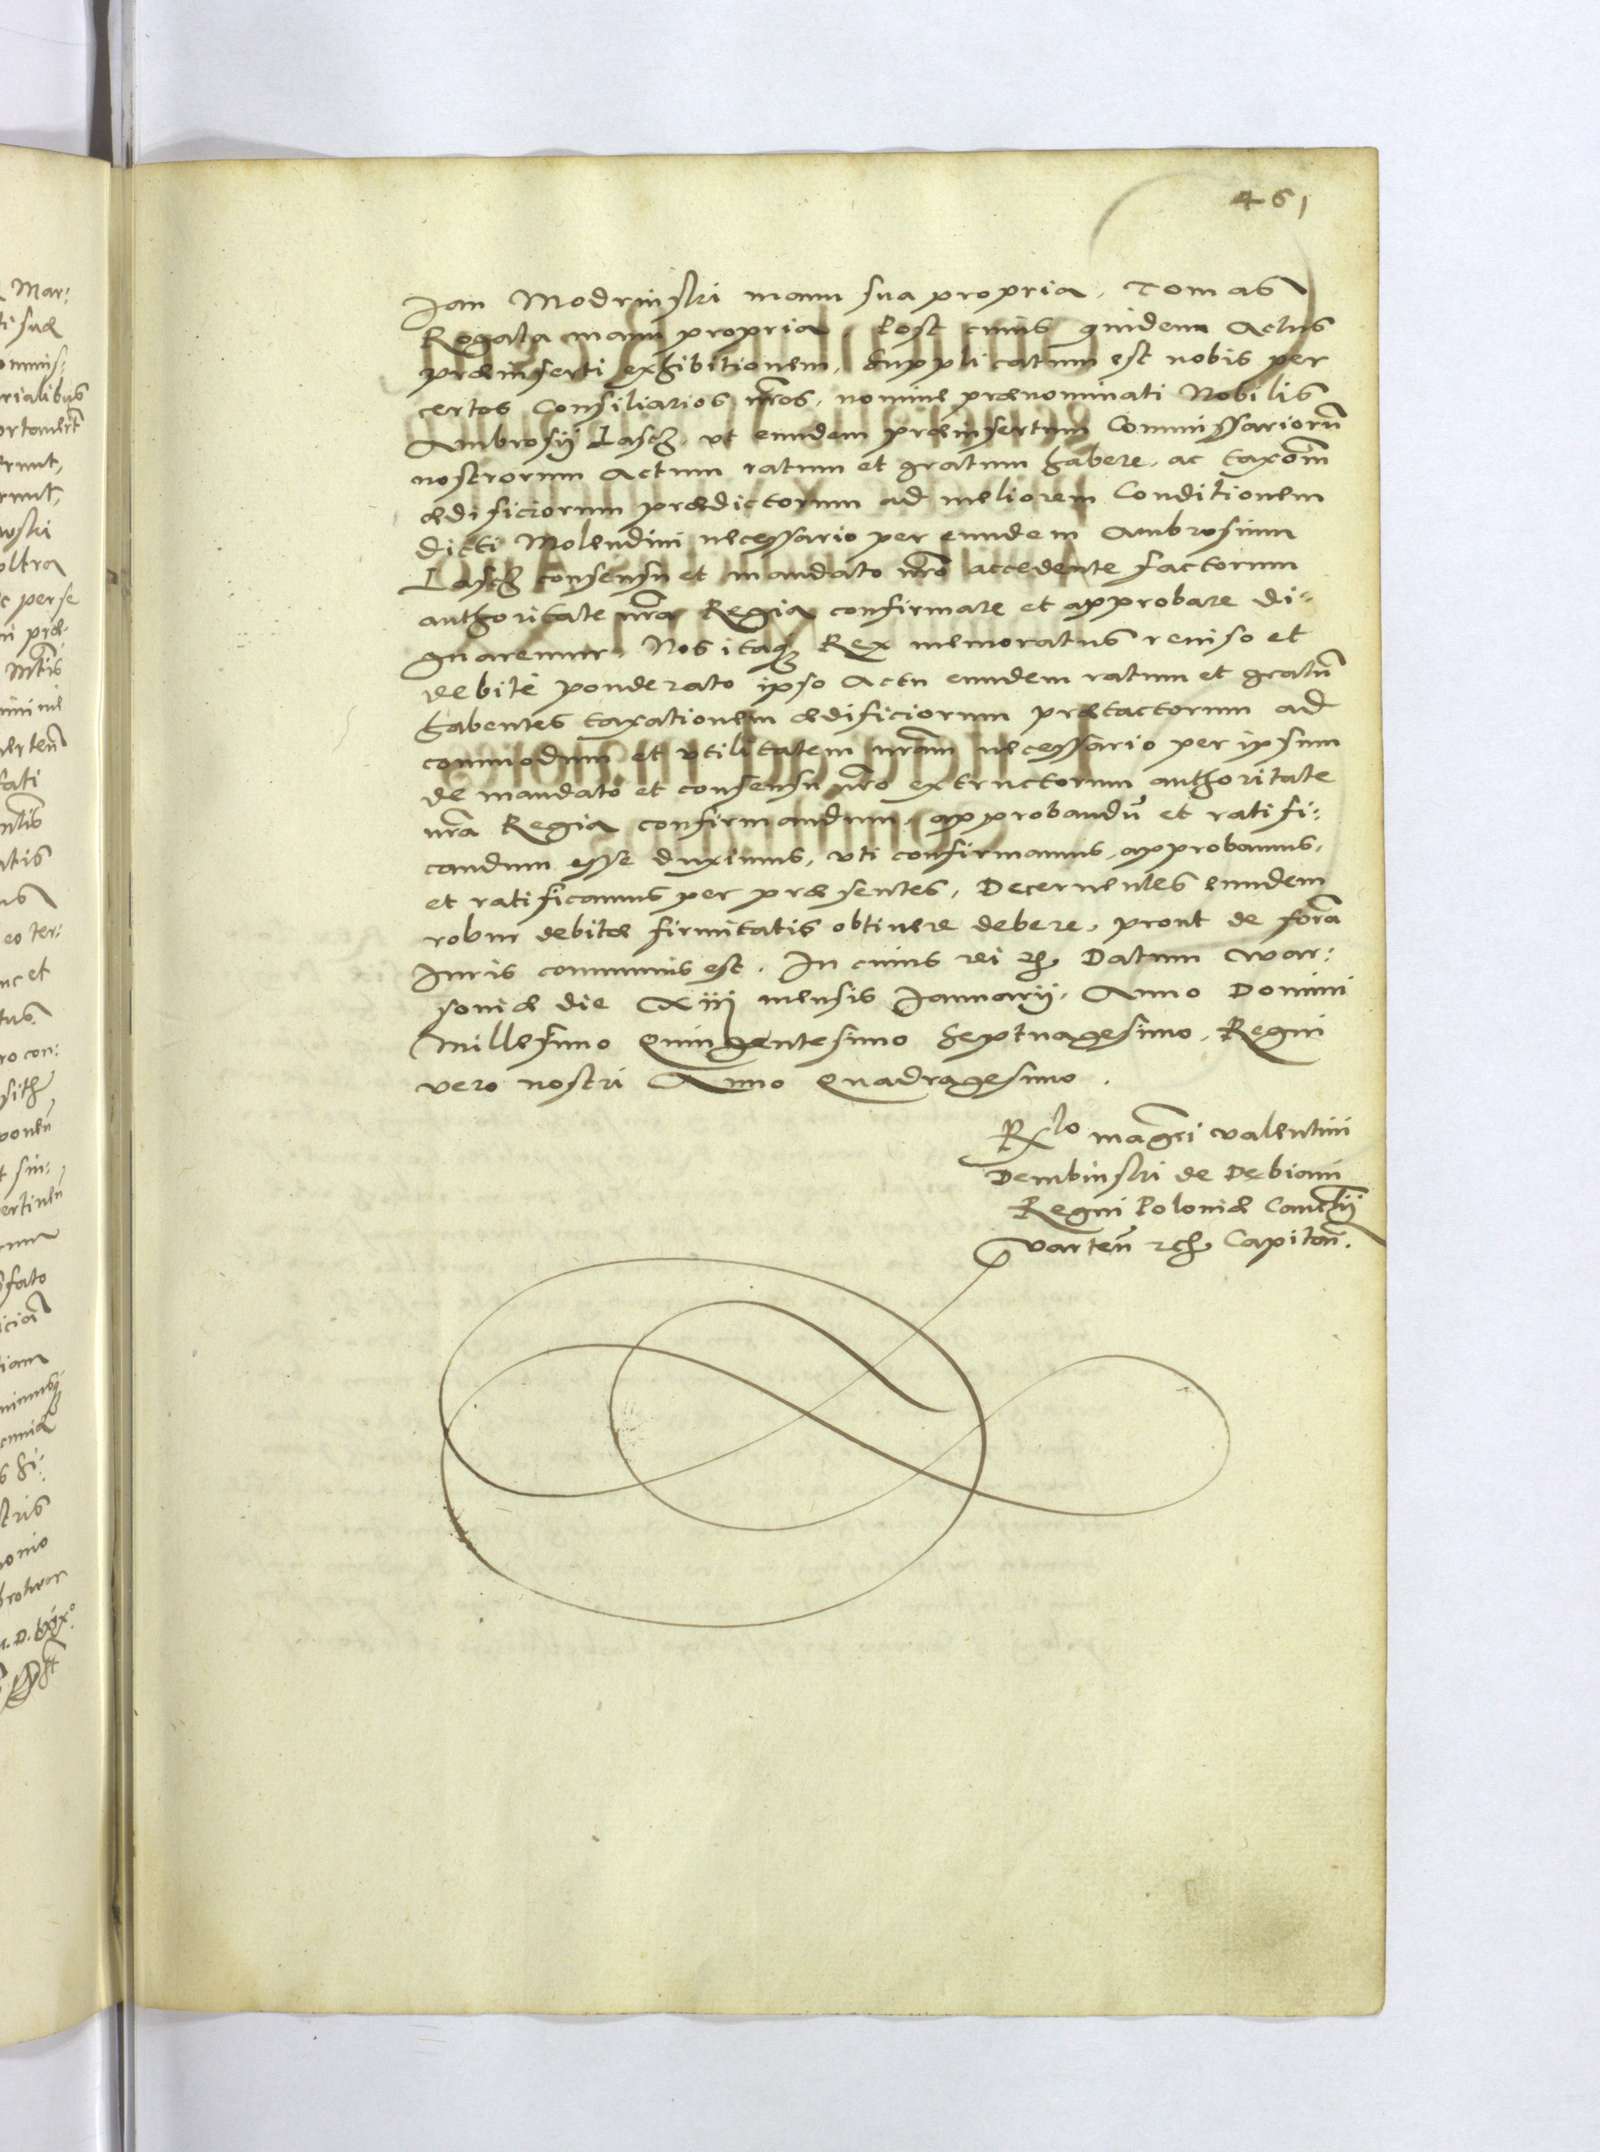 461
Jan Modrinski manu sua propria, Tomas
Rogala manu propria. Post cuius quidem Actus
præinserti exhibitionem, Supplicatum est nobis per
certos Consiliarios nros, nomine prænominati Nobilis
Ambrosij Lasch, ut eundem præinsertum Commissariorũ
nostrorum Actum ratum et gratum habere, ac taxõm
ædificiorum prædictorum ad meliorem Conditionem
dicti Molendini necessario per eundem Ambrosium
Lasch consensu et mandato nro accedente factorum
authoritate nra Regia confirmare et approbare di-
gnaremur. Nos itaq Rex memoratus reviso et
debite ponderato ipso Actu eundem ratum et gratũ
habentes taxationem ædificiorum prætactorum ad
commodum et utilitatem nram necessario per ipsum
de mandato et consensu nro extructorum authoritate
nra Regia confirmandum, approbandũ et ratifi-
candum esse duximus, uti confirmamus, approbamus,
et ratificamus per præsentes, Decernentes eundem
robur debitæ firmitatis obtinere debere, prout de forã
Iuris communis est. In cuius rei rch Datum War-
soviæ die Xiij mensis Januarij. Anno Domini
Millesimo Quingentesimo Septuagesimo. Regni
vero nostri Anno Quadragesimo.
Rlo magci Valentini
Dembinski de Debiani
Regni Poloniæ Cancrij
Varteñ rch Capitan.
Mar:
ti suæ
rialibus
wski
oltra
c per se
ni præ-
Mtis
fati
atis
eo ter:
nc et
tus
ro con: